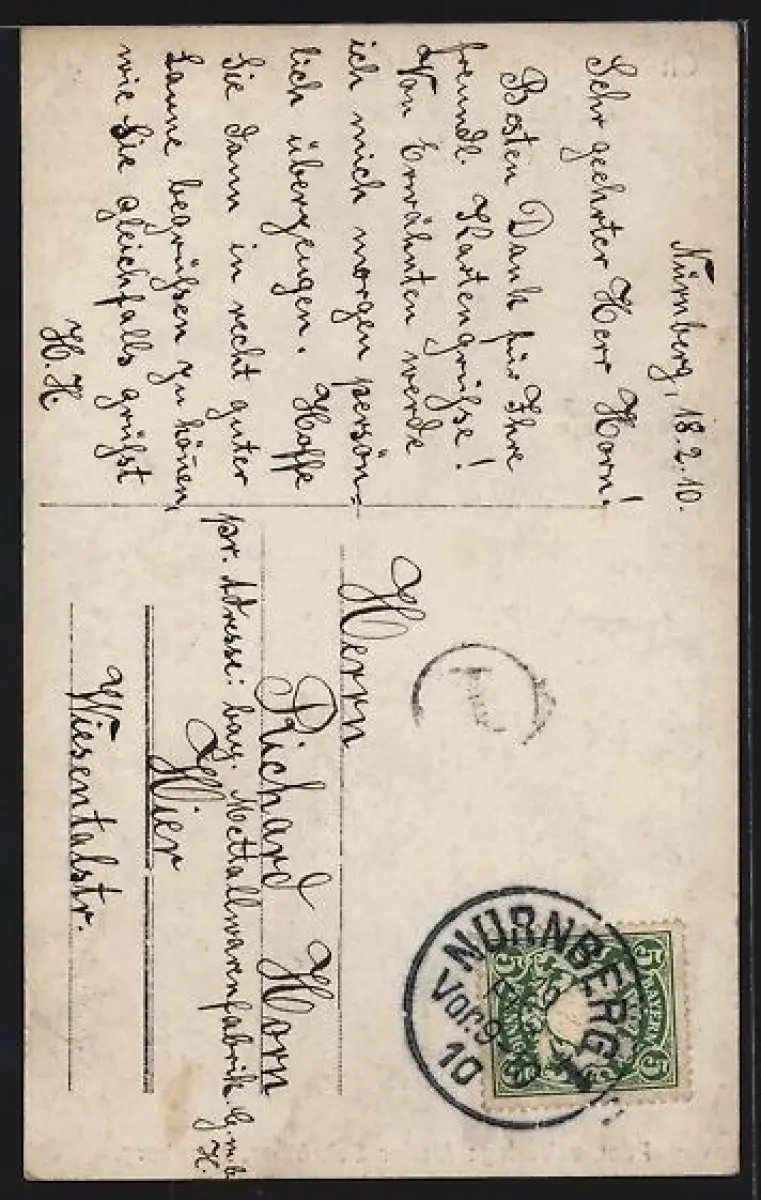 Nürnberg, 18.2.10.
Sehr geehrter Herr Horn!
Besten Dank für Ihre
freundl. Kartengrüsse!
Von Erwähnten werde
ich mich morgen persön=
lich überzeugen. Hoffe
Sie dann in recht guter
Laune begrüßen zu könen,
wie Sie gleichfalls grüßt
H. H.
Herrn
Richard Horn
pr. Adresse: bay. Mettallwarenfabrik G.m.b
H.
Hier
Wiesentalstr.
NÜRNBERG
Vor. 9-10
10
5 5
BAYERN